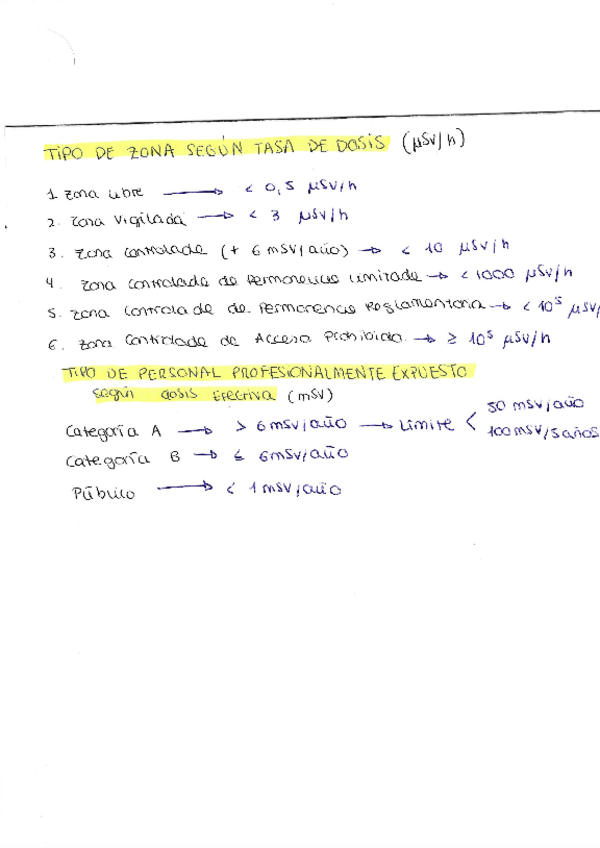 TIPO DE ZONA SEGÚN TASA DE DOSIS (µSv/h)
1. Zona Libre → < 0,5 µSv/h
2. Zona Vigilada → < 3 µSv/h
3. Zona Controlada (+ 6 mSv/año) → < 10 µSv/h
4. Zona Controlada de Permanencia Limitada → < 1000 µSv/h
5. Zona Controlada de Permanencia Reglamentaria → < 10⁵ µSv/
6. Zona Controlada de Acceso Prohibido → ≥ 10⁵ µSv/h
TIPO DE PERSONAL PROFESIONALMENTE EXPUESTO
según dosis Efectiva (mSv)
Categoría A → > 6 mSv/año → Límite < 50 mSv/año
100 mSv/5 años
Categoría B → ≤ 6 mSv/año
Público → < 1 mSv/año